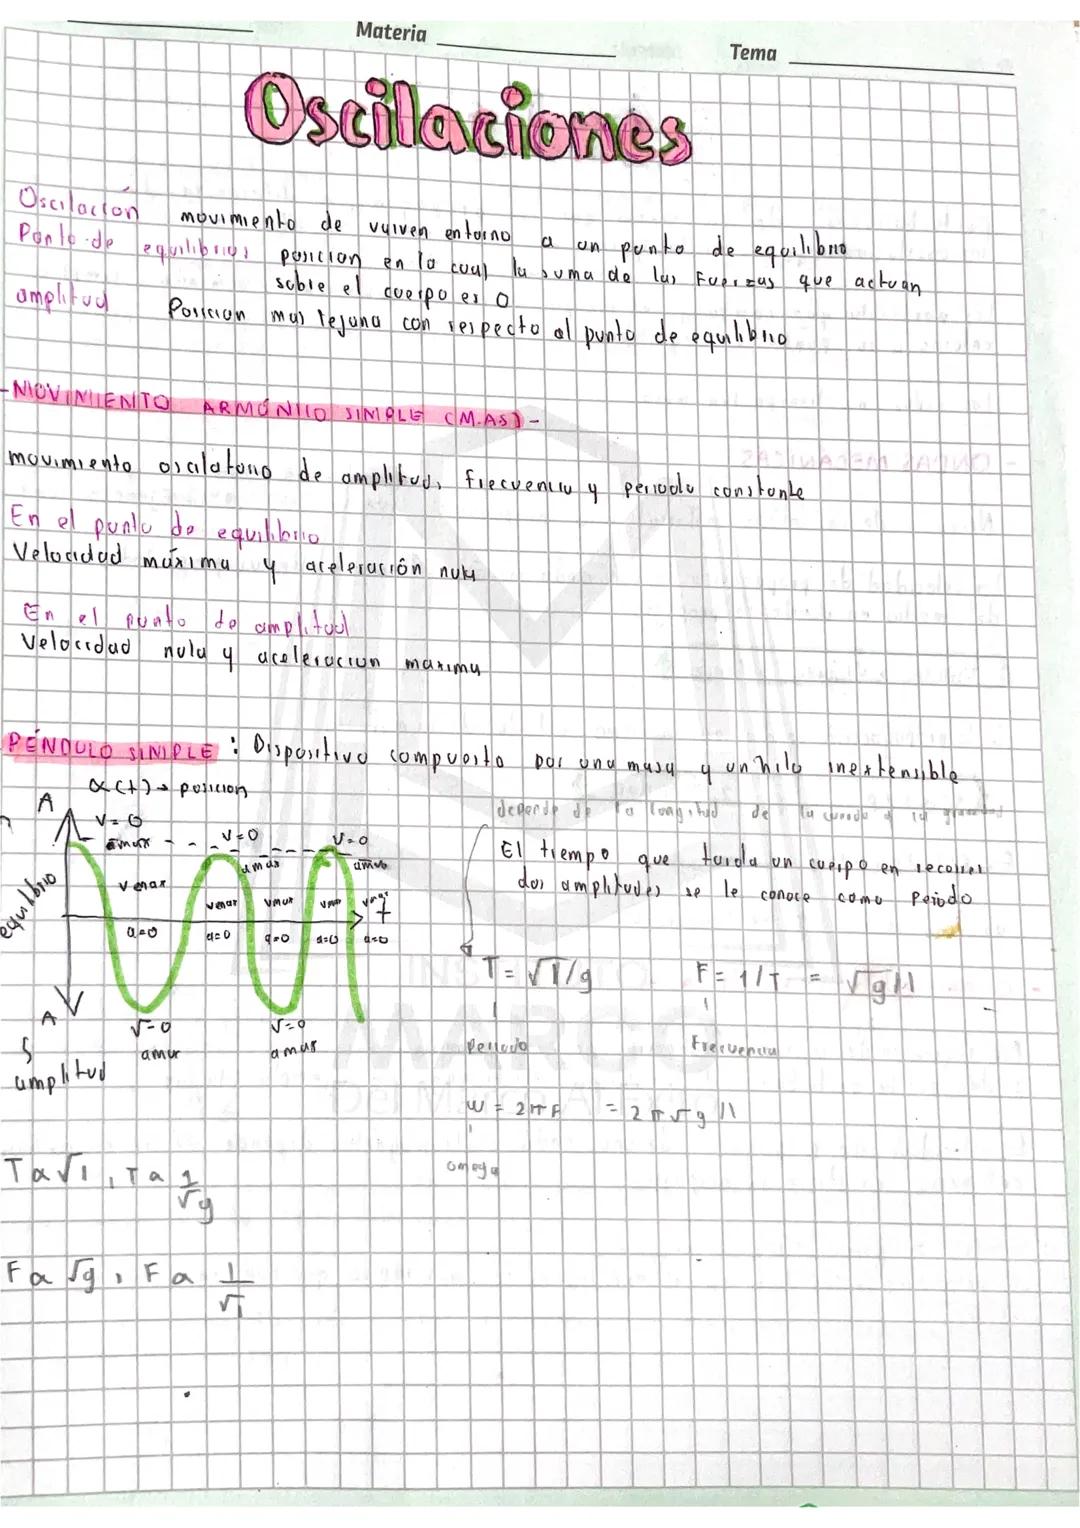 Materia
Tema
Oscilaciones
Oscilación movimiento de vaiven entorno a un punto de equilibrio
Punto de equilibrio: posicion en la cual la suma de las Fuerzas que actuan
sobre el cuerpo es 0
amplitud Posicion mas lejana con respecto al punto de equilibrio
-MOVIMIENTO ARMÓNICO SIMPLE (M.AS)-
movimiento oscilatorio de amplitud, frecuencia y periodo constante
En el punto de equilibrio
Velocidad máxima y aceleración nula
En el punto de amplitud
Velocidad nula y aceleracion maxima
PÉNDULO SIMPLE : Dispositivo compuesto por una masa y un hilo inextensible
x(t)→ posicion
depende de la longitud de la cuerda y la gravedad
A
V=0
amax
V=0
amax
V=0
amax
El tiempo que tarda un cuerpo en recorrer
dos amplitudes se le conoce como Peiodo
equilibrio
vmax
vmax
vmax
vmax
vmax
t
a=0
a=0
a=0
a=0
a=0
T= √l/g
F= 1/T = √g/l
A
V=0
amax
V=0
amax
Periodo
Frecuencia
amplitud
w = 2πF = 2π√g/l
omega
T α √l , T α 1/√g
F α √g , F α 1/√l